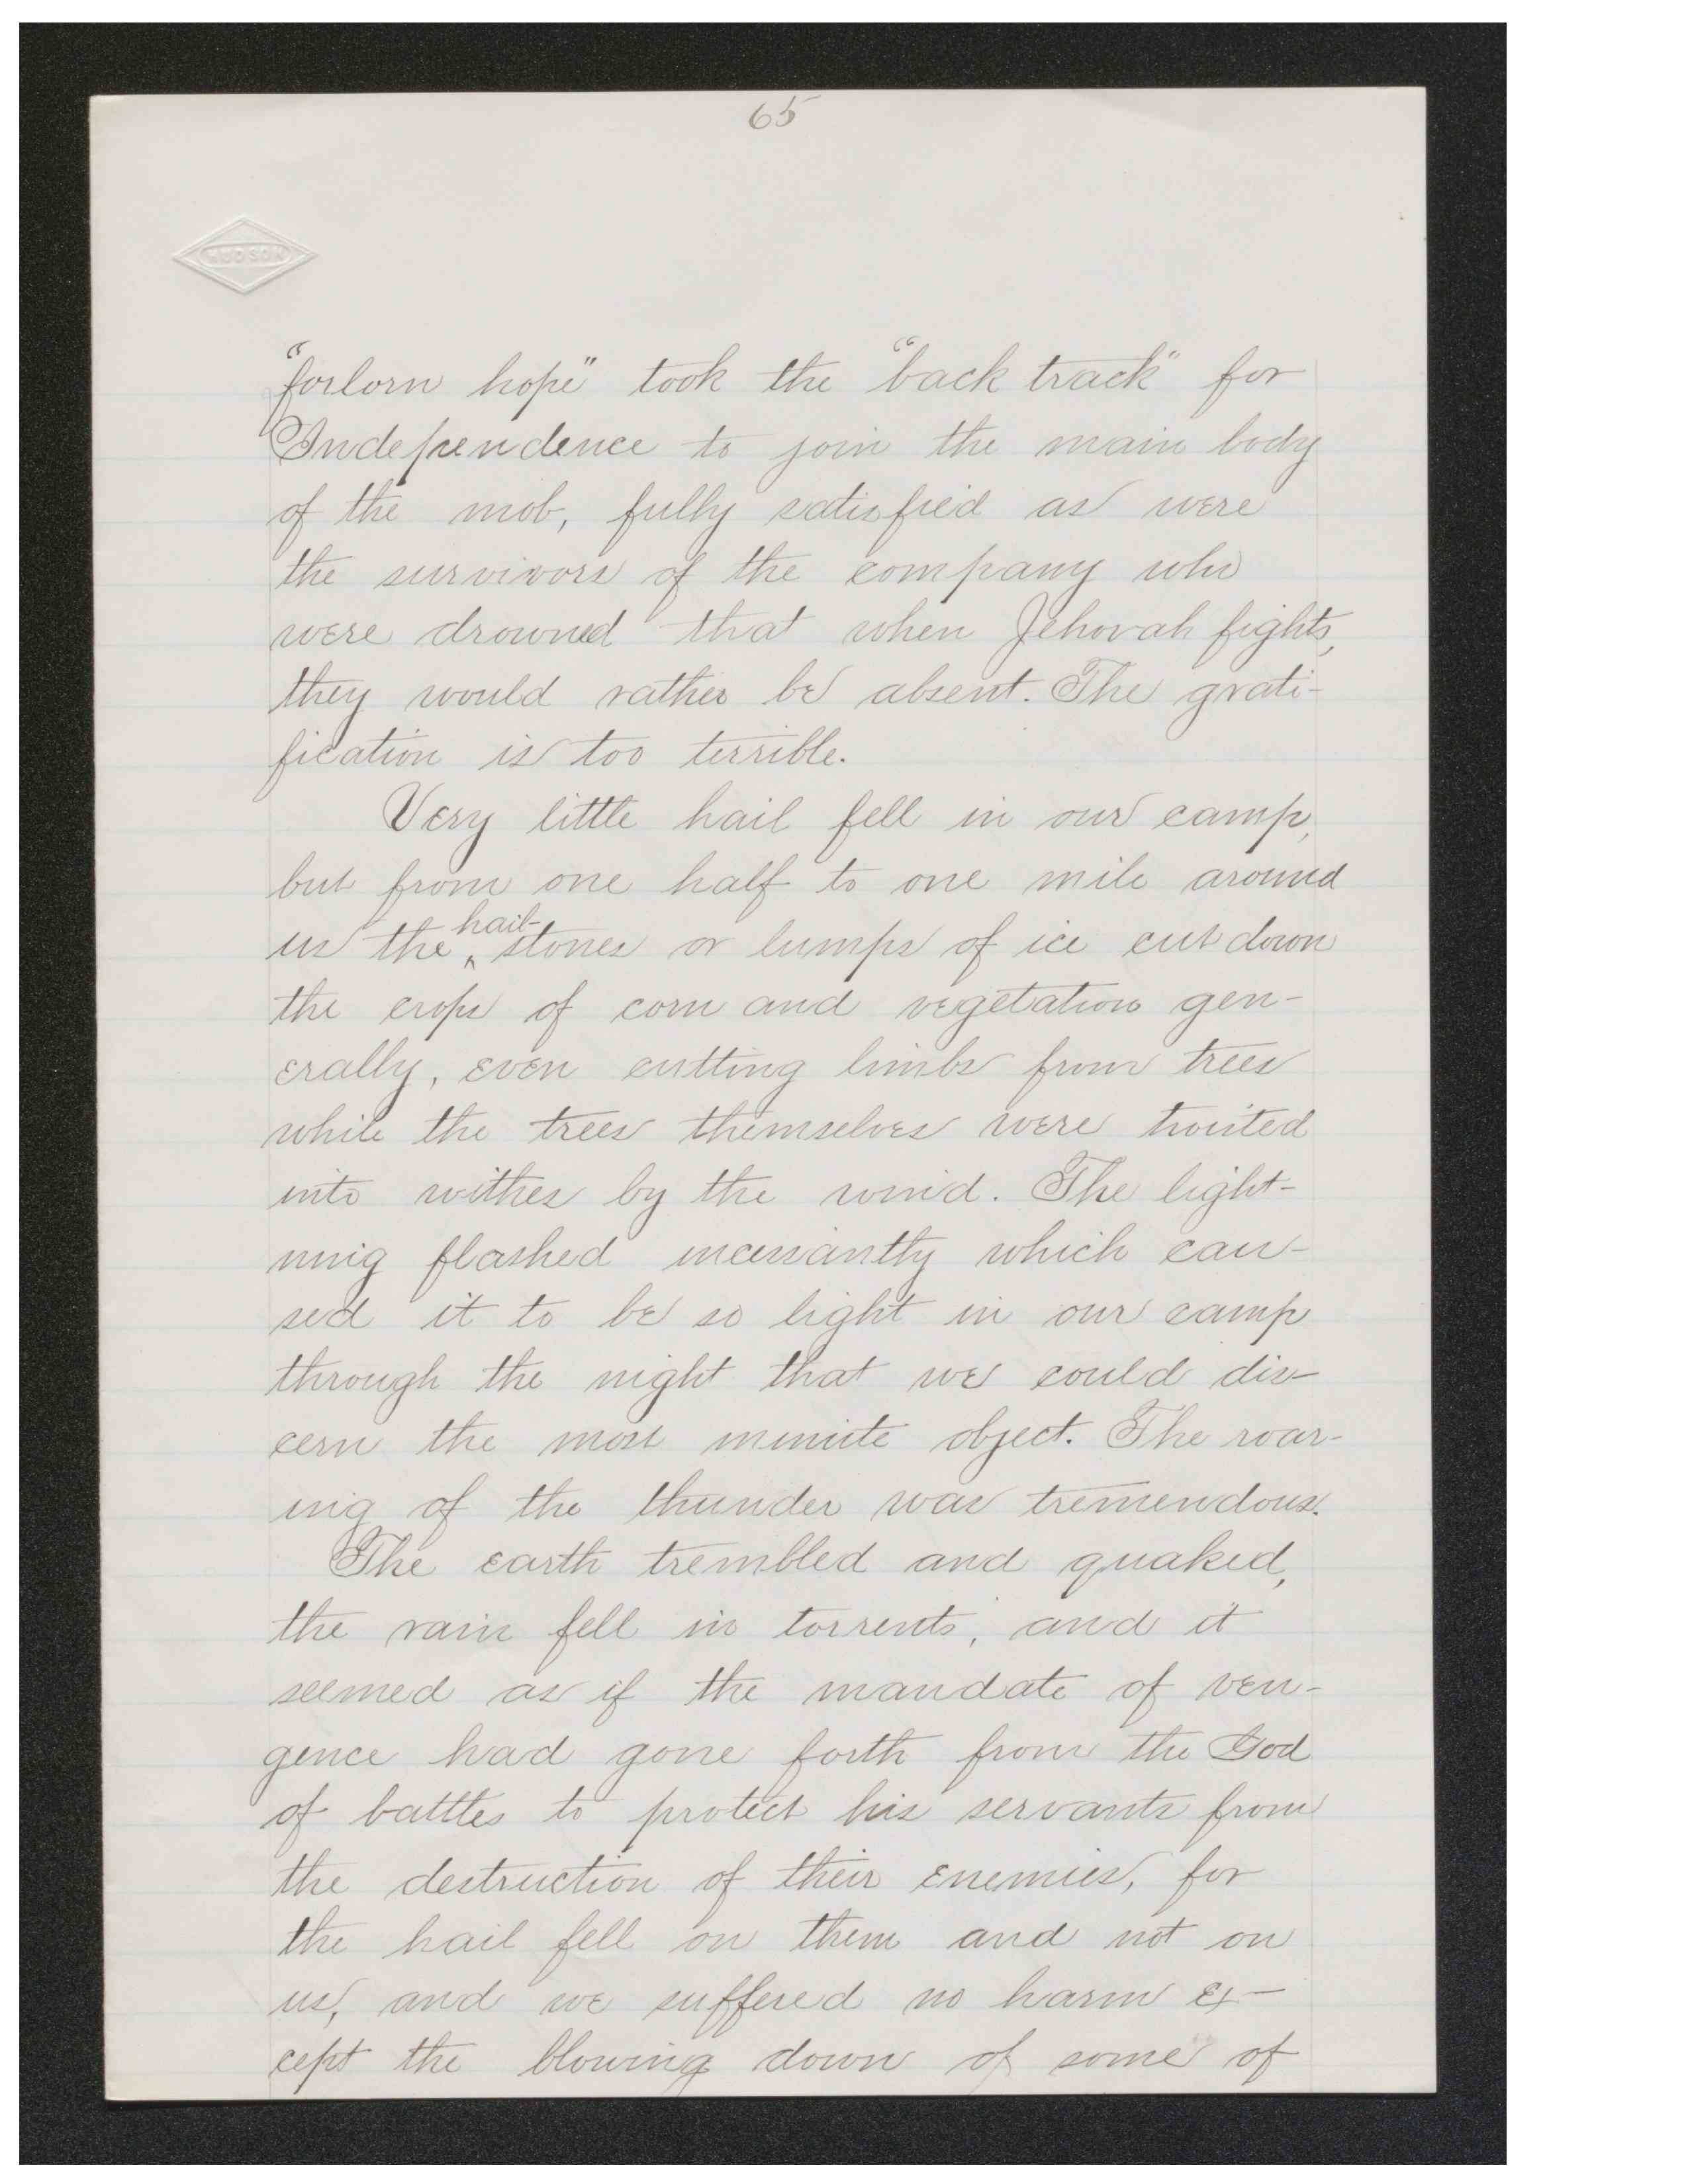 65
HUDSON
"forlorn hope" took the "back track" for
Independence to join the main body
of the mob, fully satisfied as were
the survivors of the company who
were drowned that when Jehovah fights,
they would rather be absent. The grati-
fication is too terrible.
Very little hail fell in our camp,
but from one half to one mile around
us the hail-stones or lumps of ice cut down
the crops of corn and vegetation gen-
erally, even cutting limbs from trees
while the trees themselves were twisted
into withes by the wind. The light-
ning flashed incessantly which cau-
sed it to be so light in our camp
through the night that we could dis-
cern the most minute object. The roar-
ing of the thunder was tremendous.
The earth trembled and quaked,
the rain fell in torrents, and it
seemed as if the mandate of ven-
gence had gone forth from the God
of battles to protect his servants from
the destruction of their enemies, for
the hail fell on them and not on
us, and we suffered no harm ex-
cept the blowing down of some of